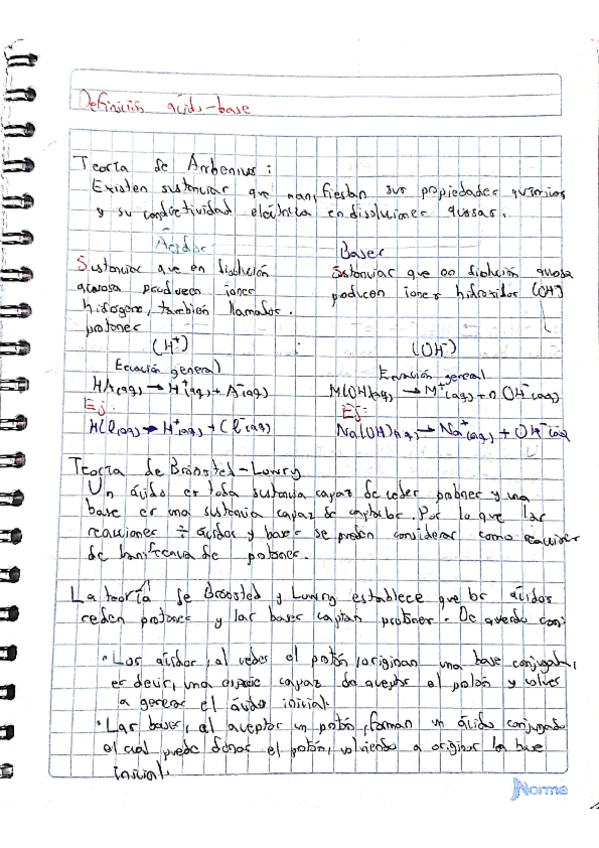 Definición ácido-base
Teoría de Arrhenius:
Existen sustancias que manifiestan sus propiedades químicas
y su conductividad eléctrica en disoluciones acuosas.
Ácidos Bases
Sustancias que en disolución Sustancias que en disolución acuosa
acuosa producen iones producen iones hidroxidos (OH)
hidrógeno, también llamados.
protones
(H⁺) (OH⁻)
Ecuación general Ecuación general
HA(aq) → H⁺(aq) + A⁻(aq) M(OH)(aq) → M⁺(aq) + n OH⁻(aq)
Ej: Ej:
HCl(aq) → H⁺(aq) + Cl⁻(aq) Na(OH)(aq) → Na⁺(aq) + OH⁻(aq)
Teoría de Brönsted-Lowry
Un ácido es toda sustancia capaz de ceder protones y una
base es una sustancia capaz de captarlos. Por lo que las
reacciones ÷ ácidos y bases se pueden considerar como reacciones
de transferencia de protones.
La teoría de Bronsted y Lowry establece que los ácidos
ceden protones y las bases captan protones. De acuerdo con:
• Los ácidos, al ceder el protón, originan una base conjugada,
es decir, una especie capaz de aceptar el protón y volver
a generar el ácido inicial.
• Las bases, al aceptar un protón, forman un ácido conjugado
el cual puede donar el protón, volviendo a originar la base
inicial.
Norma